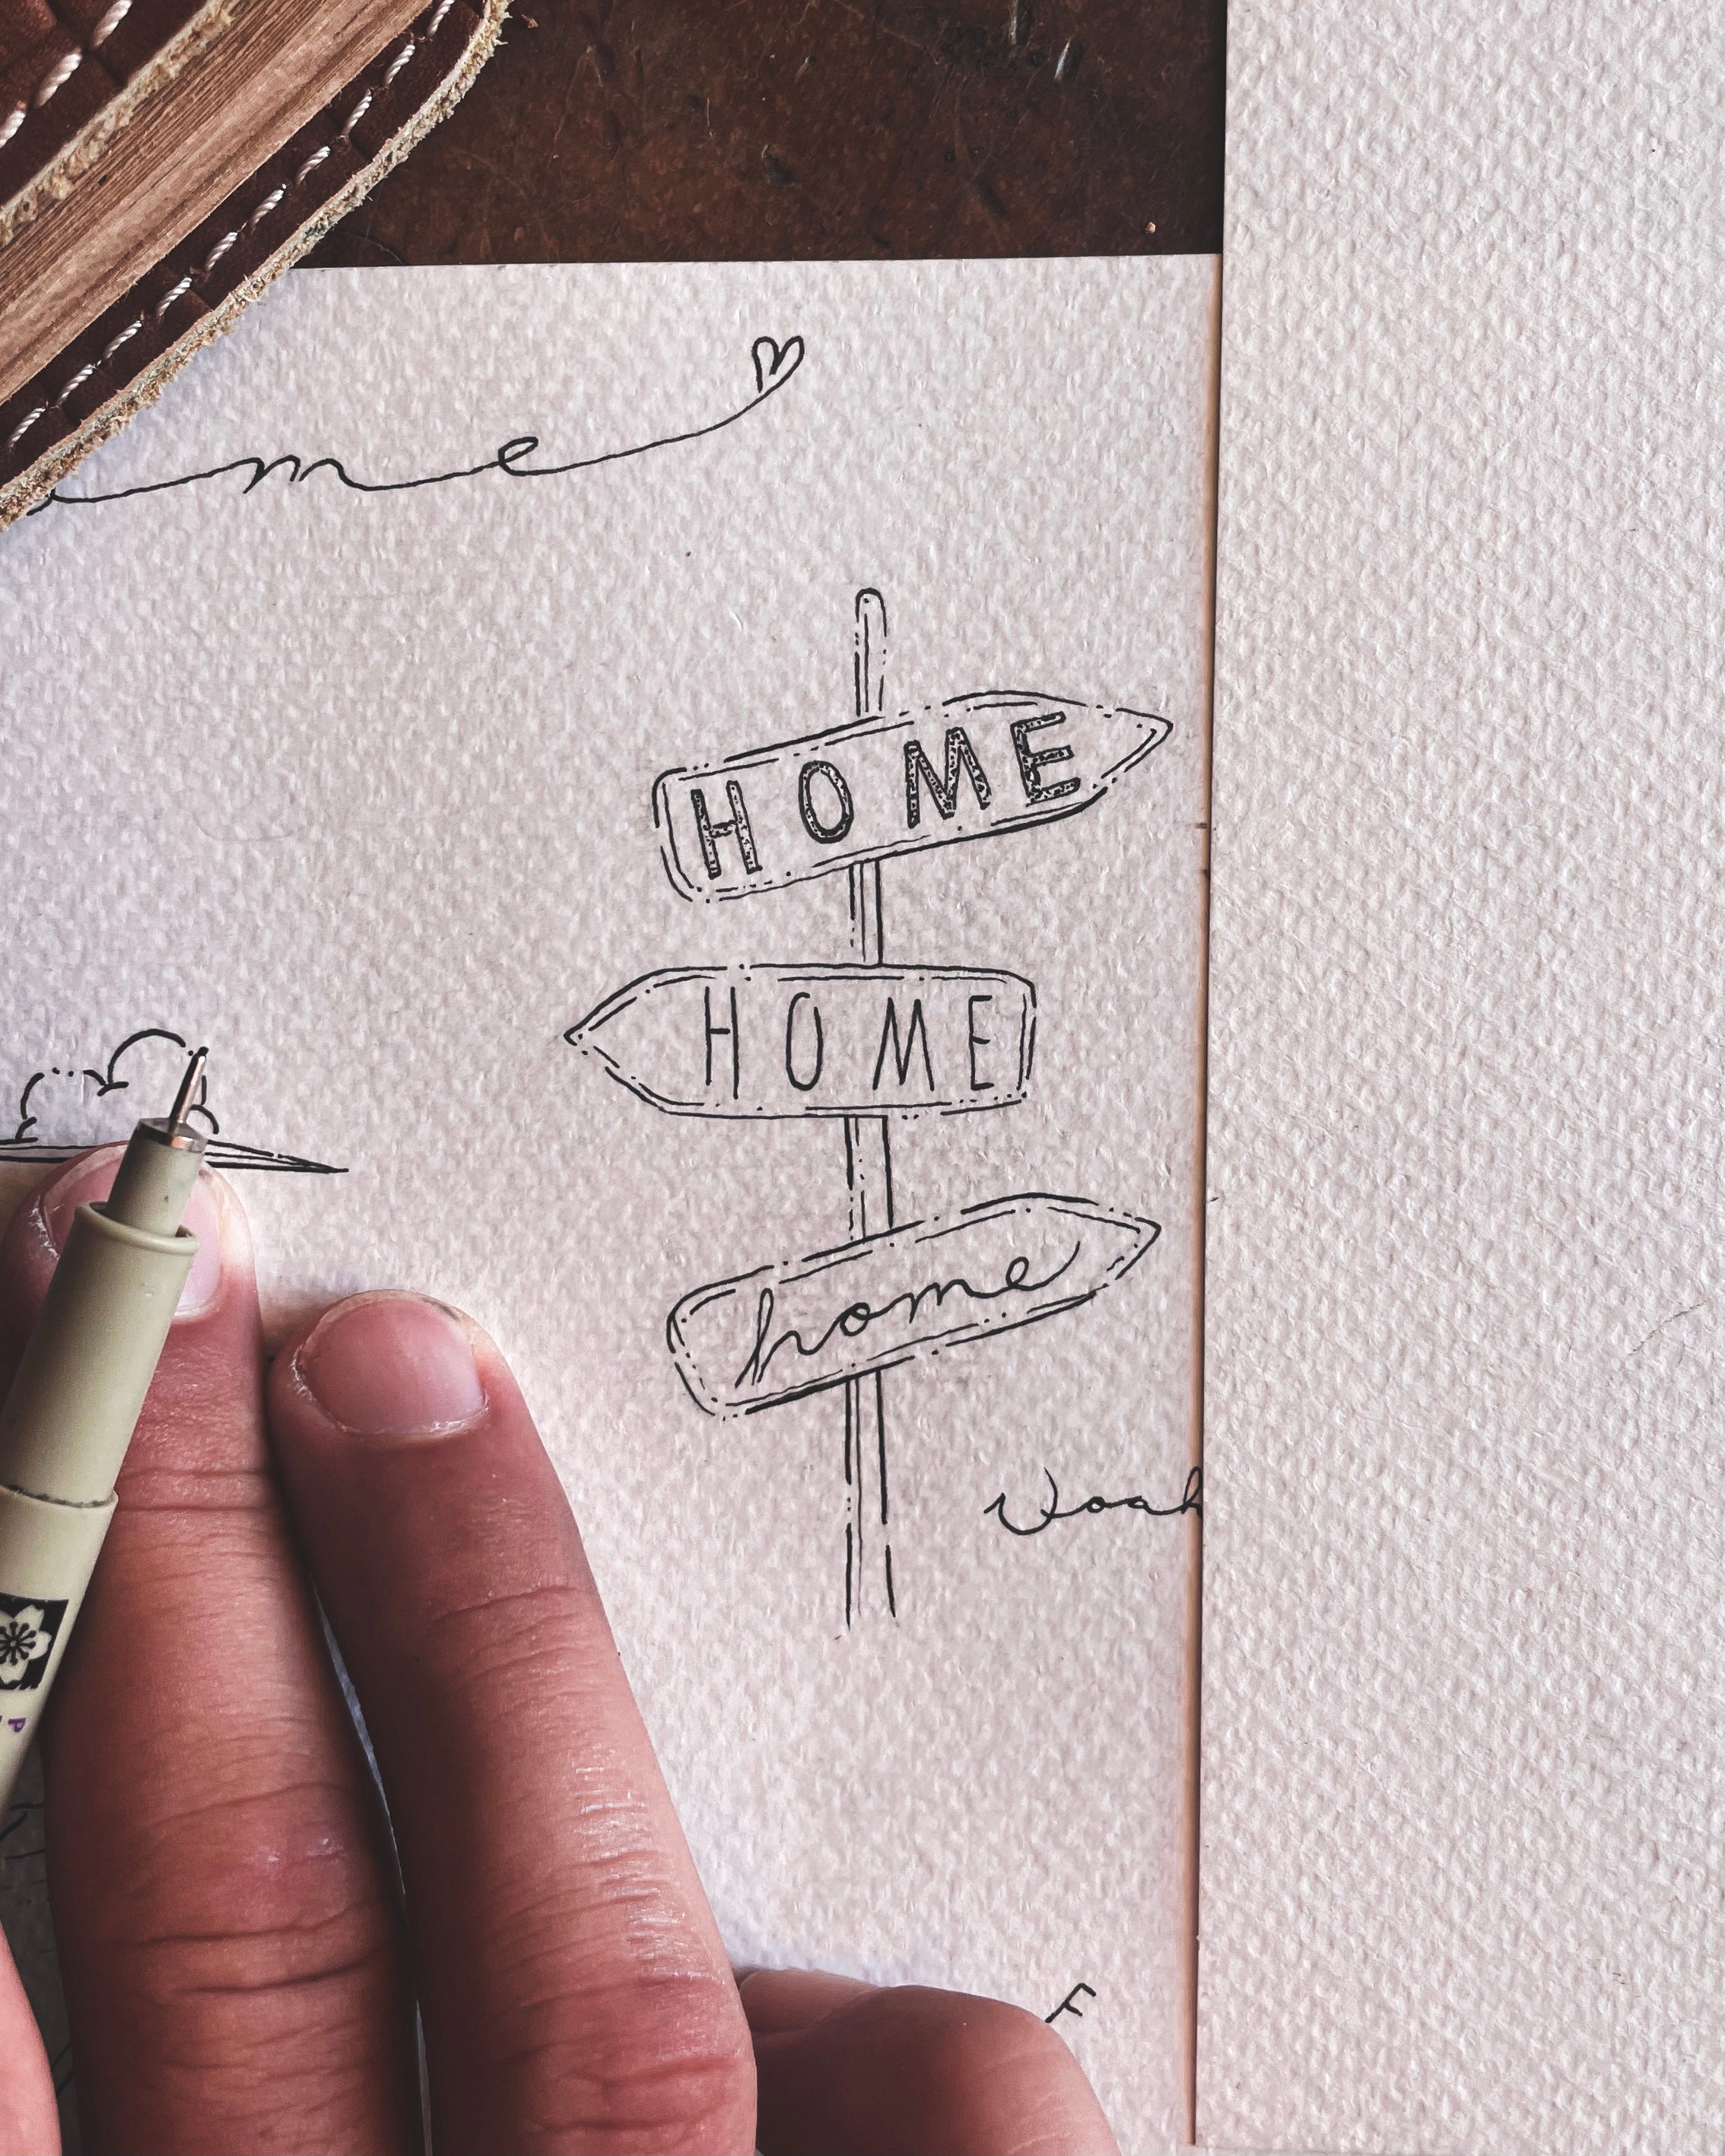 me
HOME
HOME
home
Noah
F
P